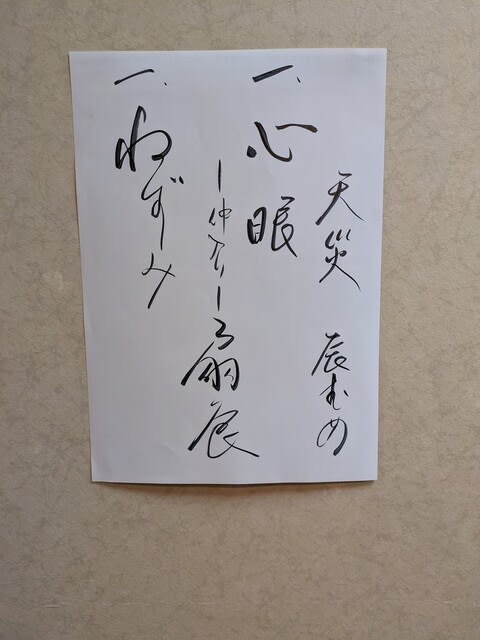 天災 辰むめ
一、心眼
ー仲入りー
扇辰
一、ねずみ